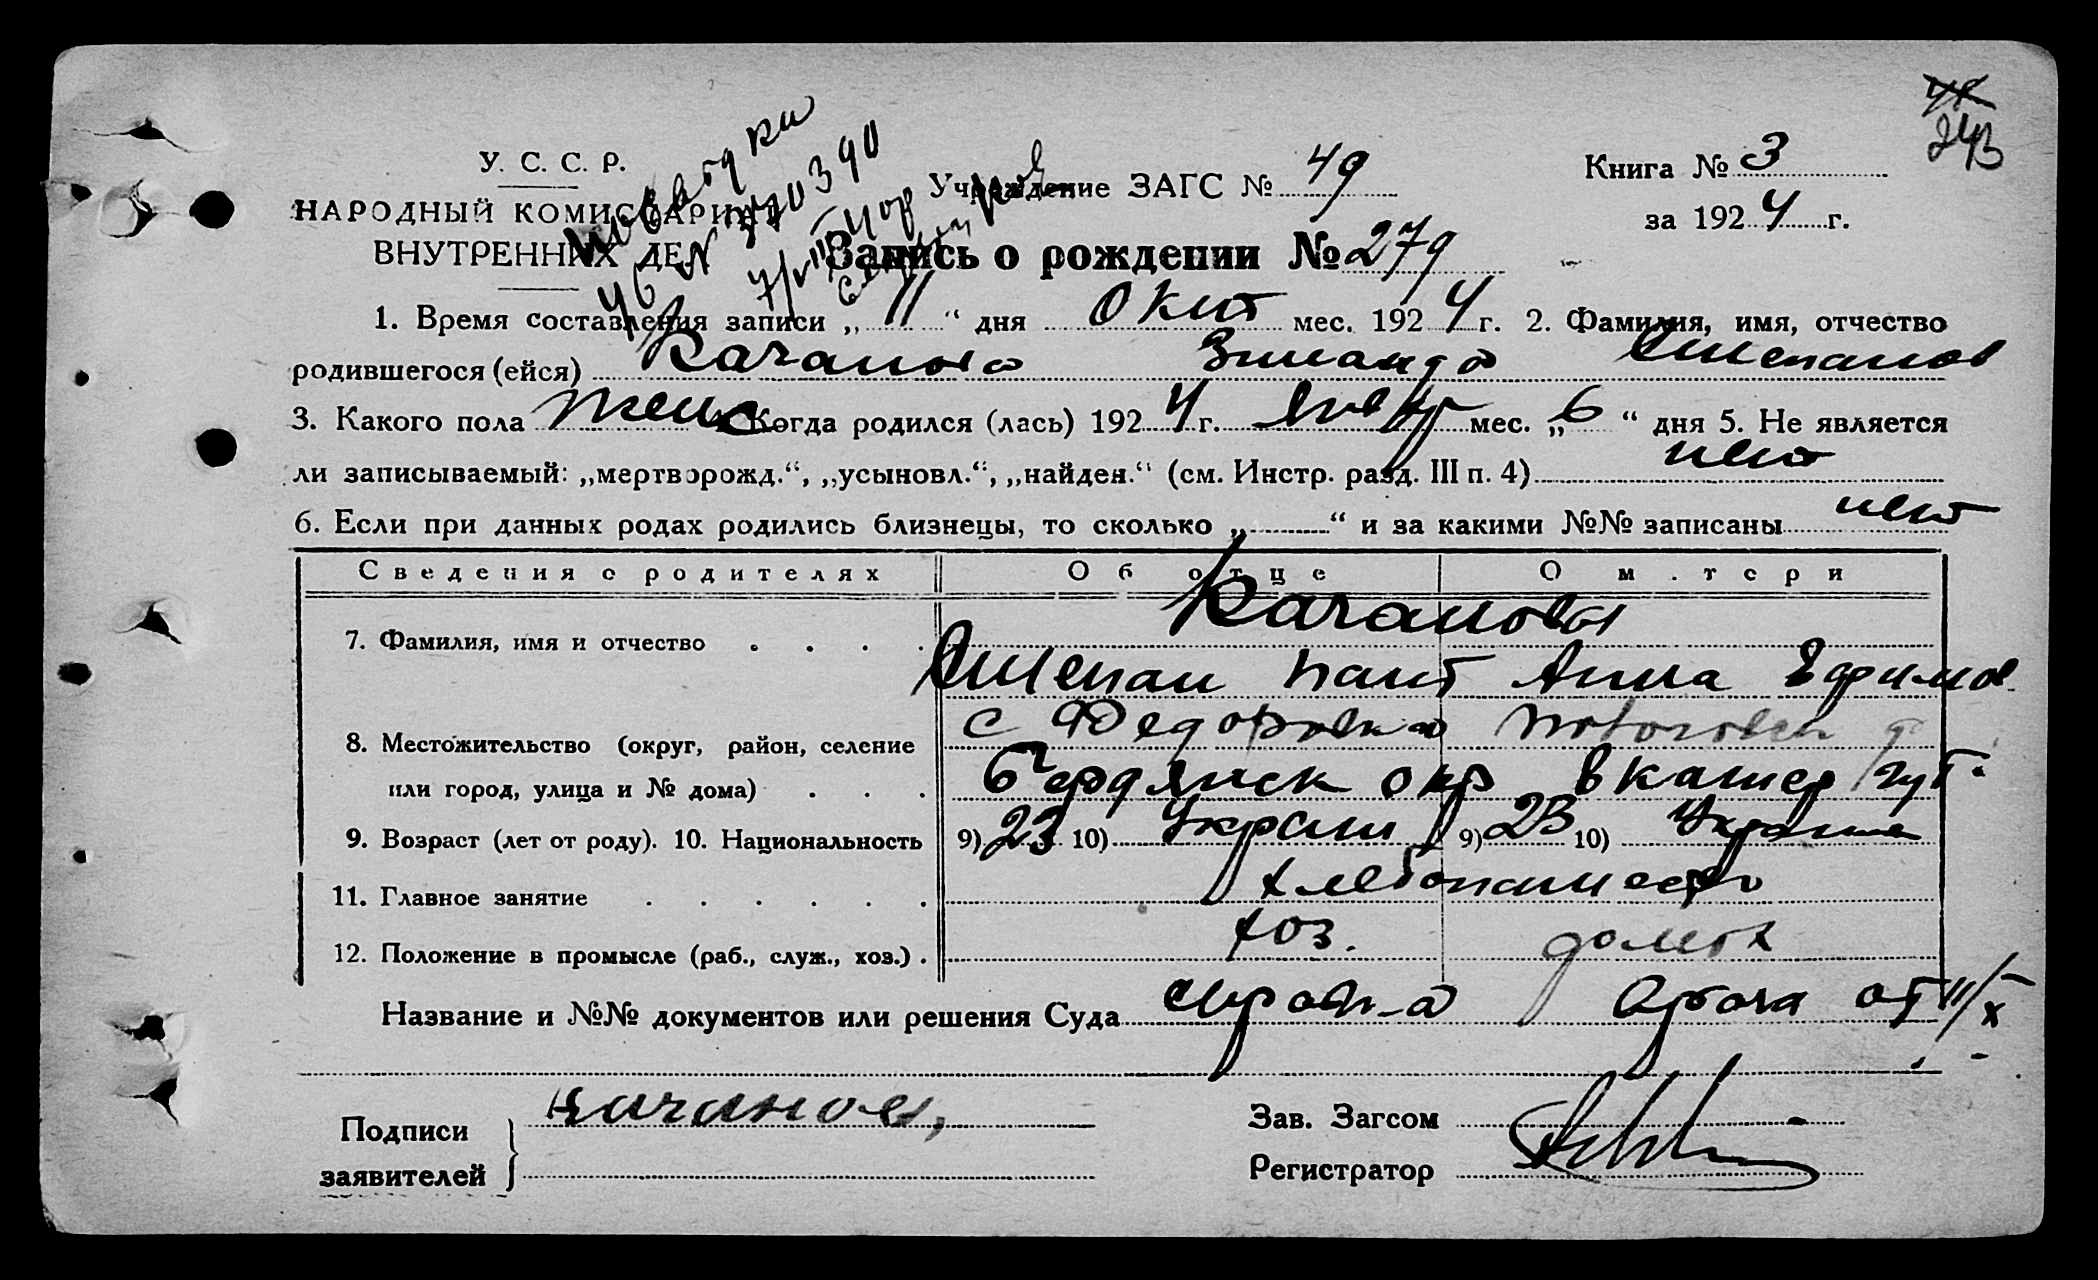 243
У. С. С. Р.
НАРОДНЫЙ КОМИССАРИАТ
ВНУТРЕННИХ ДЕЛ
Учреждение ЗАГС № 49
Книга № 3
за 1924 г.
Запись о рождении № 279
1. Время составления записи „ 11 “ дня Окт мес. 1924 г. 2. Фамилия, имя, отчество
родившегося (ейся) Качанова Зинаида Степанов
3. Какого пола женс Когда родился (лась) 1924 г. мес. „ 6 “ дня 5. Не является
ли записываемый: „мертворожд.“, „усыновл.“, „найден.“ (см. Инстр. разд. III п. 4) нет
6. Если при данных родах родились близнецы, то сколько „ “ и за какими №№ записаны нет
Сведения о родителях Об отце О м.тери
Качановы
7. Фамилия, имя и отчество
Степан Пант Анна Ефимов
с Федоровка
8. Местожительство (округ, район, селение
или город, улица и № дома)
Бердянск окр
9. Возраст (лет от роду). 10. Национальность 9) 23 10) Украин 9) 23 10)
11. Главное занятие хлебопашество
12. Положение в промысле (раб., служ., хоз.) хоз. домох
Название и №№ документов или решения Суда справка от 11/X
Подписи
заявителей
Качанов,
Зав. Загсом
Регистратор